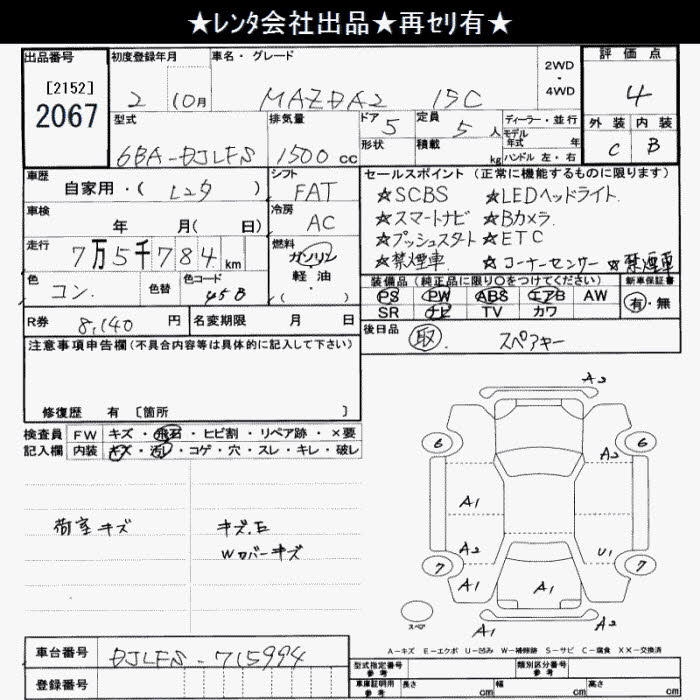 ★レンタ会社出品★再セリ有★
出品番号
[2152]
2067
初度登録年月
2 10月
車名・グレード
MAZDA2 15C
2WD
・
4WD
評価点
4
外装 内装
C B
型式
6BA-DJLFS
排気量
1500 cc
ドア
5
定員
5 人
形状
積載
kg
ディーラー・並行
モデル
年式 年
ハンドル 左・右
車歴
自家用・( レンタ )
シフト
FAT
車検
年 月( 日)
冷房
AC
走行
7万5千784 km
燃料
ガソリン
軽・油
・( )
色
コン
色替
色コード
45B
R券
8,140 円
名変期限 月 日
セールスポイント(正常に機能するものに限ります)
☆SCBS ☆LEDヘッドライト
☆スマートナビ ☆Bカメラ
☆プッシュスタート ☆ETC
☆禁煙車 ☆コーナーセンサー ☆禁煙車
装備品(純正品に限り○をつけてください)
PS PW ABS エアB AW
SR ナビ TV カワ
新車保証書
有・無
後日品
取 スペアキー
注意事項申告欄(不具合内容等は具体的に記入して下さい)
修復歴 有 [箇所 ]
検査員 FW キズ・飛石・ヒビ割・リペア跡・×要
記入欄 内装 キズ・汚レ・コゲ・穴・スレ・キレ・破レ
荷室キズ
キズ.E
Wカバーキズ
A2
6 6
A2
A1
A2 U1
7 7
A1 A1
スペア
A1 A2
A-キズ E-エクボ U-凹み W-補修跡 S-サビ C-腐食 XX-交換済
車台番号
DJLFS-715994
登録番号
型式指定番号
参考
類別区分番号
参考
車庫証明用
参考
長さ cm 幅 cm 高さ cm